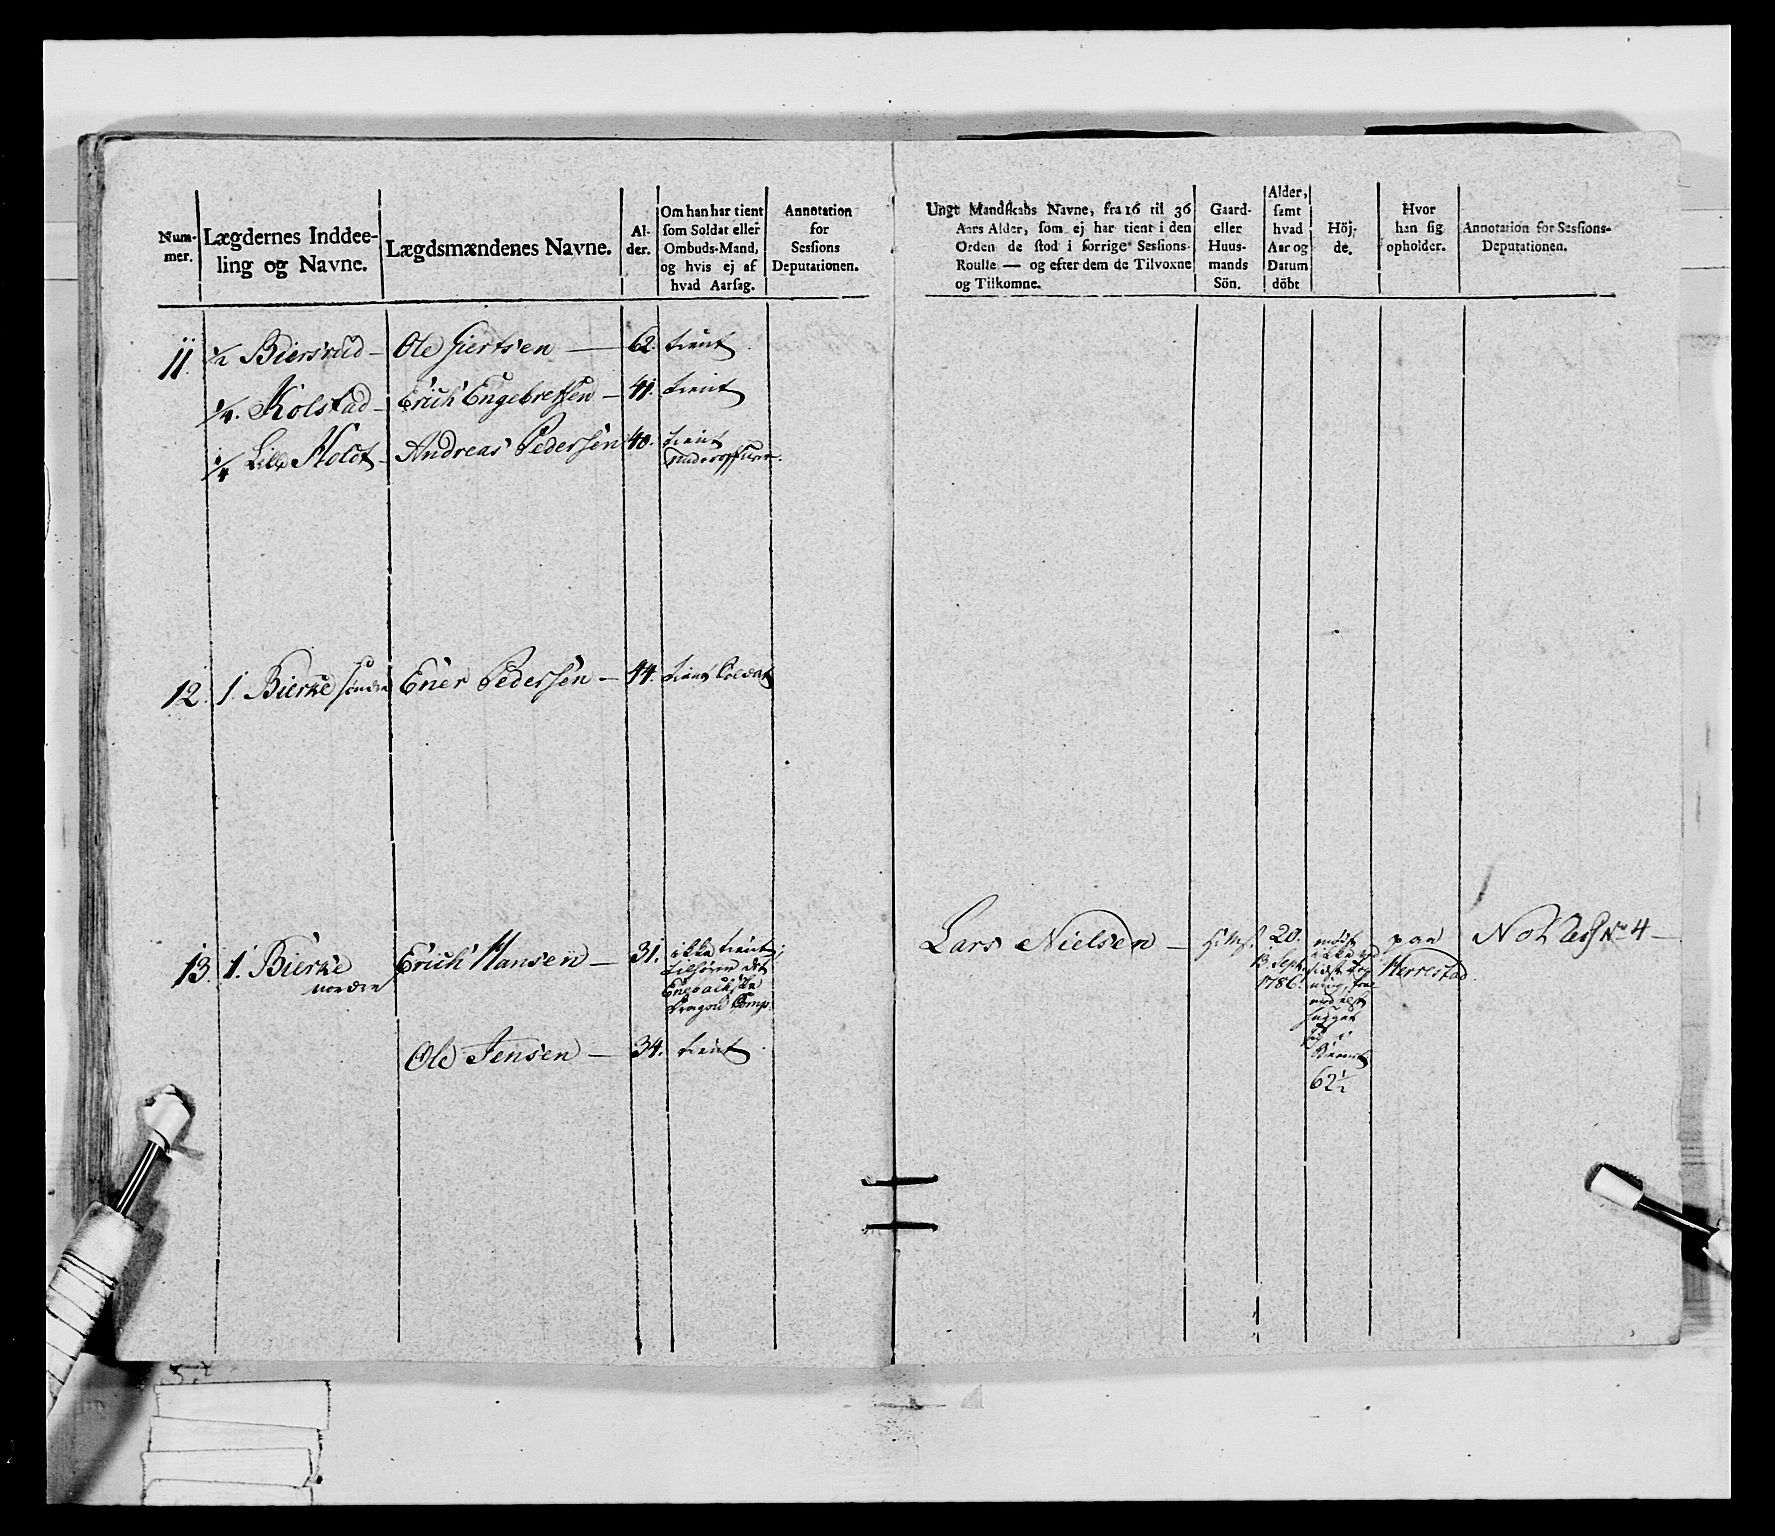 Num-
mer.
Lægdernes Inddee-
ling og Navne.
Lægdsmændenes Navne.
Al-
der.
Om han har tient
som Soldat eller
Ombuds-Mand,
og hvis ej af
hvad Aarsag.
Annotation
for
Sessions
Deputationen.
Ungt Mandskabs Navne, fra 16 til 36
Aars Alder, som ej har tient i den
Orden de stod i forrige Sessions-
Roulle — og efter dem de Tilvoxne
og Tilkomne.
Gaard-
eller
Huus-
mands
Sön.
Alder,
samt
hvad
Aar og
Datum
döbt
Höj-
de.
Hvor
han sig
opholder.
Annotation for Sessions-
Deputationen.
11. 1/2 Biersrud — Ole Giertsen — 62. tient
1/4. Kolstad — Erich Engebretsen — 41. tient
1/4 Lille Holdt — Andreas Pedersen 40. tient
Underofficeer.
12. 1. Bierke söndre Ener Pedersen — 44. tient Soldat
13. 1. Bierke
nordre
Erich Hansen — 31. ikke tient,
tilhörer det
Enebackske
Dragon Comp.
Ole Jensen — 34. tient
Lars Nielsen — H: M: S. 20.
13 Sept.
1786.
mödt
ikke ved
62 1/2
paa
Herrestad.
No 4 —